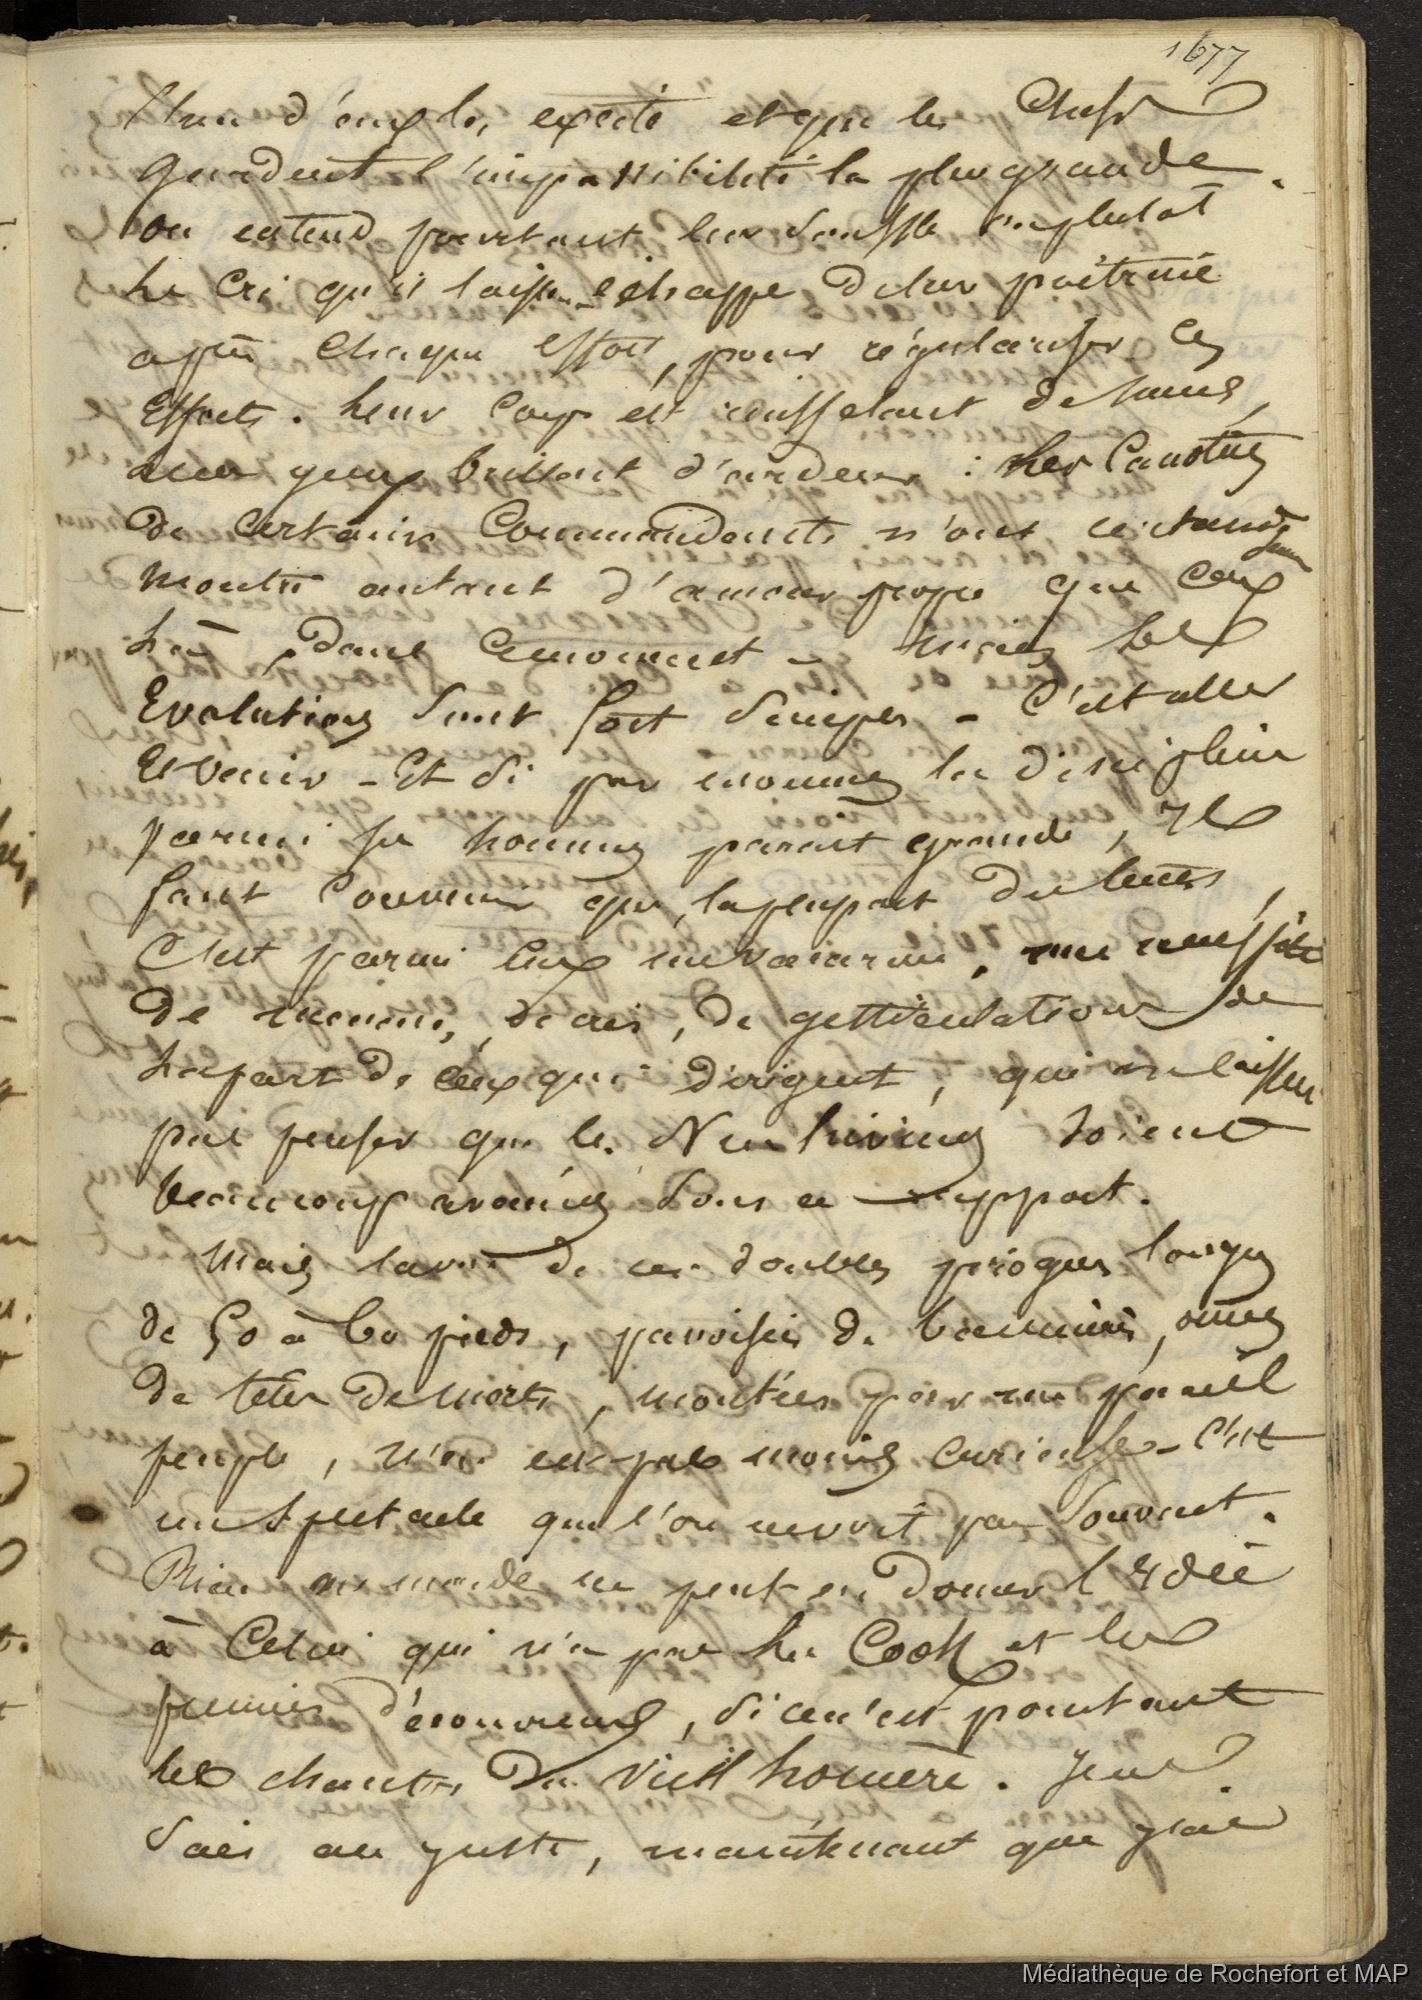 1677
d'eux les excite et que les Chefs
gardent l'impassibilité la plus grande.
on entend pourtant leur souffle ou plutôt
le Cri qu'ils laissent échapper de leur poitrine
après chaque effort, pour régulariser Ces
Efforts. leur Corps est ruisselant de sueur,
leurs yeux brillent d'ardeur : les Canotiers
de certains Commandants n'ont certainement
montré autant d'amour propre que Ceux
là, dans Ce moment - mais les
Evolutions sont fort simples - C'est aller
Et venir - Et si par moments la discipline
parmi ses hommes parait grande, il
faut Convenir que, la plupart du temps,
C'est parmi Eux un vacarme, une
de, de cris, de gesticulations de
la part de Ceux qui dirigent, qui ne laissent
pas penser que les Nouhiviens soient
beaucoup avancés sous ce rapport.
Mais la vue de ces doubles pirogues longues
de 50 à 60 pieds, pavoisées de bannières, ornées
de têtes de morts, montées par un pareil
peuple, n'en est pas moins curieuse - C'est
un spectacle que l'on ne voit pas souvent.
Rien au monde ne peut en donner l'idée
à Celui qui n'a pas lu Cook et les
premiers découvreurs, si ce n'est pourtant
les chants du vieil homère. Je ne
sais au juste, maintenant que j'ai
Médiathèque de Rochefort et MAP